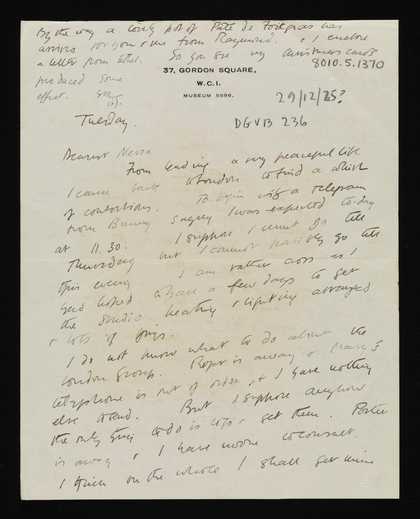 By the way a lovely pot of Pâté de Foie gras has
arrived for you & me from Raymond. & I enclose
a letter from Ethel. So you see my Christmas cards
produced some
effect.
8010.5.1370
37, GORDON SQUARE,
W.C.1.
MUSEUM
29/12/25?
DGVB 236
Tuesday.
Dearest Nessa
From leading a very peaceful life
I came back to London to find a whirl
of contortions. To begin with a telegram
from Bunny saying I was expected to-day
at 11.30. I suppose I must go till
Thursday but I cannot possibly go till
this evening. I am rather cross as I
had hoped to have a few days to get
the studio heating & lighting arranged
& lots of jobs.
I do not know what to do about the
London Group. Roger is away &
telephone is out of order, & I have nothing
else to send. But I suppose anyhow
the only thing to do is to get them. Porter
is away & I have no one to consult.
I think on the whole I shall get